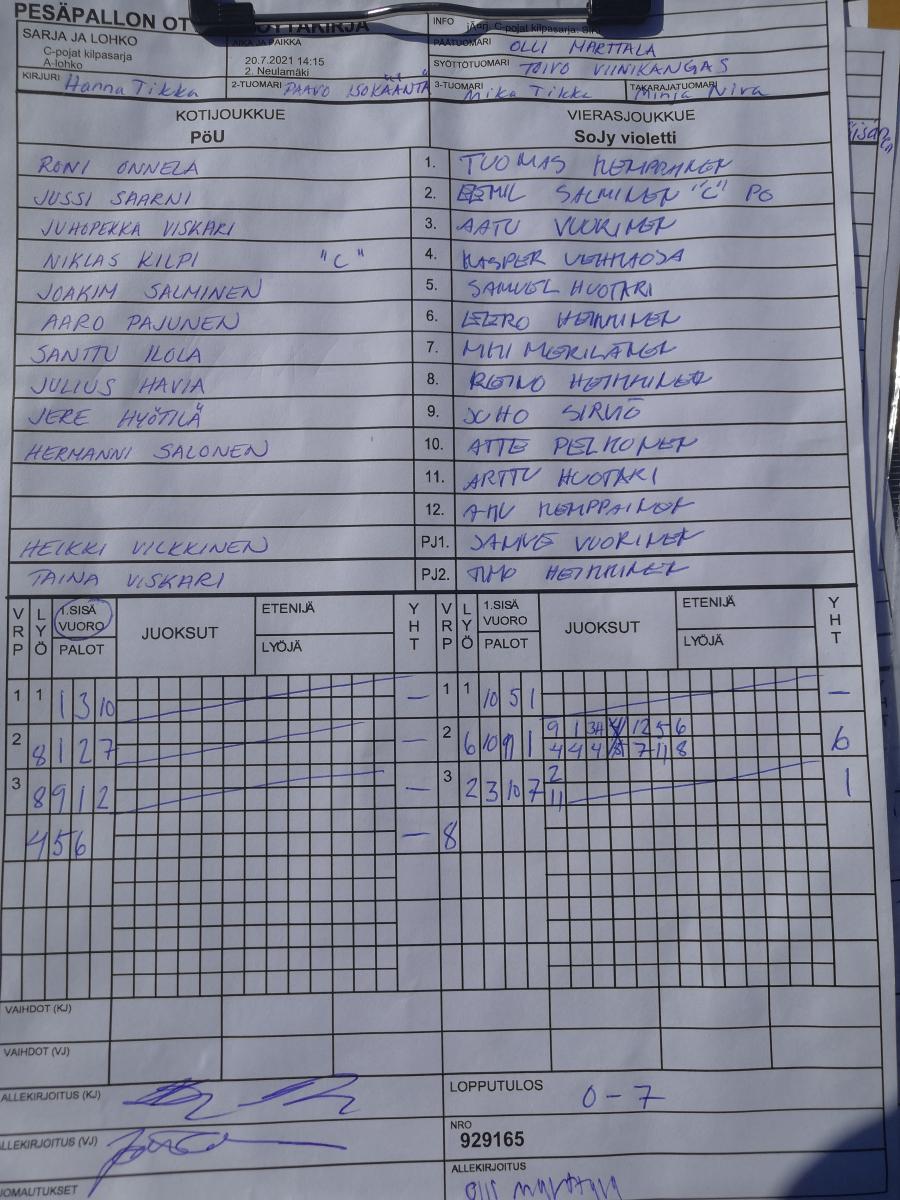 PESÄPALLON OTTELUPÖYTÄKIRJA
SARJA JA LOHKO
C-pojat kilpasarja
A-lohko
AIKA JA PAIKKA
20.7.2021 14:15
2. Neulamäki
INFO
C-pojat kilpasarja:
PÄÄTUOMARI OLLI MARTTALA
SYÖTTÖTUOMARI TOIVO VIINIKANGAS
KIRJURI Hanna Tikka
2-TUOMARI PAAVO ISOKÄÄNTÄ
3-TUOMARI Mika Tikka
TAKARAJATUOMARI Minja Niva
KOTIJOUKKUE
PöU
VIERASJOUKKUE
SoJy violetti
RONI ONNELA 1. TUOMAS KEMPPAINEN
JUSSI SAARNI 2. EEMIL SALMINEN "C" PG
JUHOPEKKA VISKARI 3. AATU VUORINEN
NIKLAS KILPI "C" 4. KASPER
JOAKIM SALMINEN 5. SAMUEL HUOTARI
AARO PAJUNEN 6. EERO HEIKKINEN
SANTTU ILOLA 7. MERILÄINEN
JULIUS HAVIA 8. REINO HEIKKINEN
JERE HYÖTILÄ 9. JUHO SIRVIÖ
HERMANNI SALONEN 10. ATTE PELKONEN
11. ARTTU HUOTARI
12. AKU KEMPPAINEN
HEIKKI VILKKINEN PJ1. SANNE VUORINEN
TAINA VISKARI PJ2. TIMO HEIKKINEN
VRP LYÖ 1.SISÄ VUORO PALOT JUOKSUT ETENIJÄ LYÖJÄ YHT VRP LYÖ 1.SISÄ VUORO PALOT JUOKSUT ETENIJÄ LYÖJÄ YHT
1 1 1 3 10 — 1 1 10 5 1 —
2 8 1 2 7 — 2 6 10 9 1 9 1 3 12 5 6 6
4 4 4 7 11 8
3 8 9 1 2 — 3 2 3 10 7 2 1
11
4 5 6 — 8
VAIHDOT (KJ)
VAIHDOT (VJ)
ALLEKIRJOITUS (KJ)
LOPPUTULOS 0-7
ALLEKIRJOITUS (VJ)
NRO
929165
HUOMAUTUKSET
ALLEKIRJOITUS
Olli Marttala